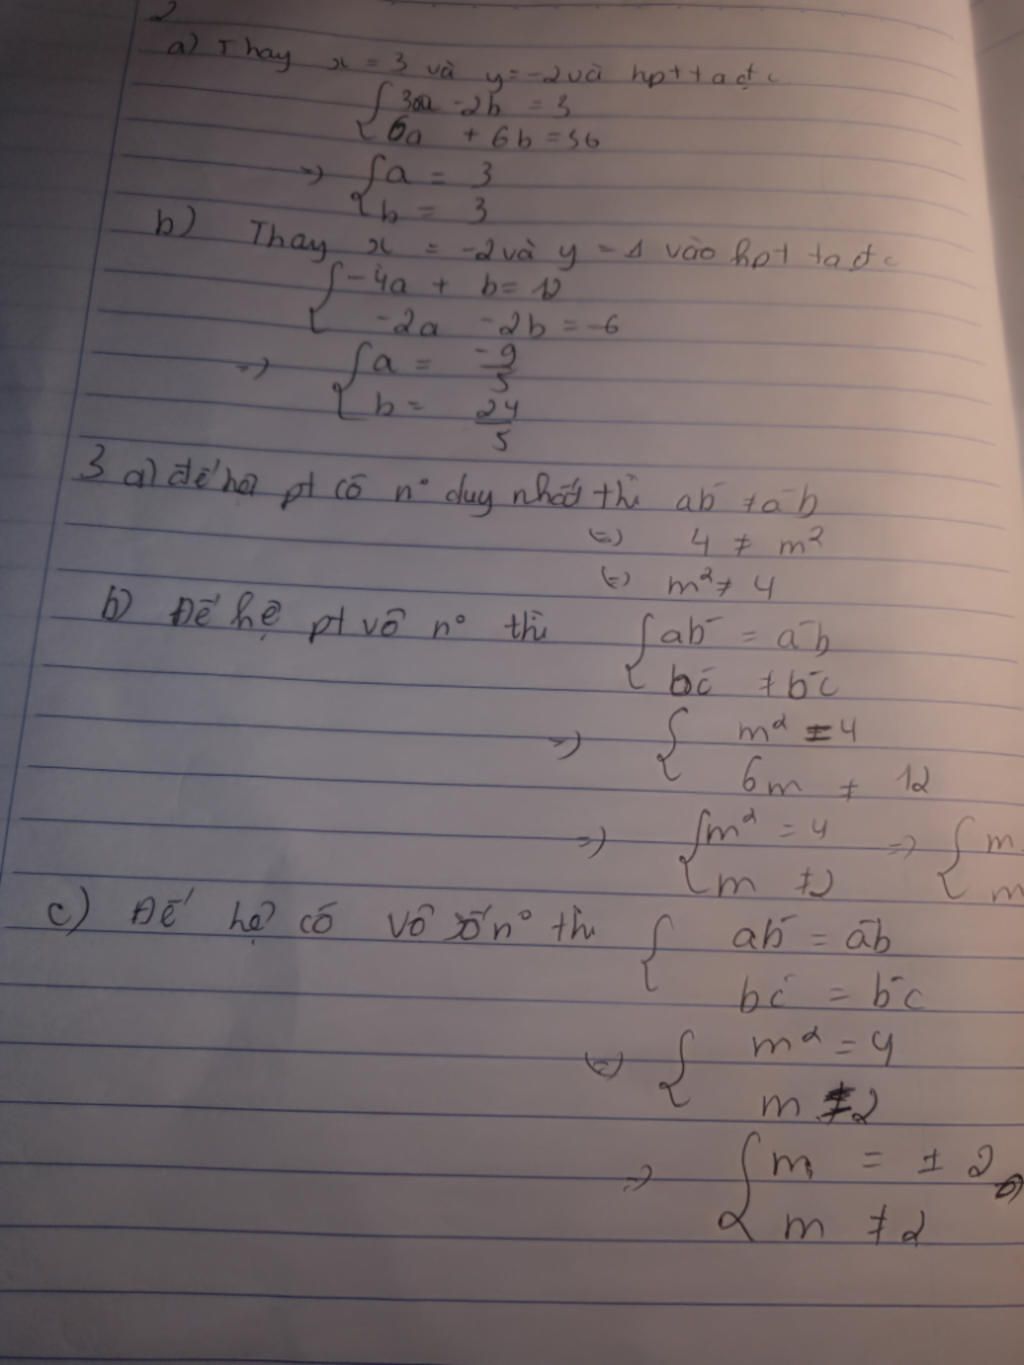 2
a) Thay x = 3 và y = -2 và hpt ta đ c
{ 3a - 2b = 3
6a + 6b = 36
=> { a = 3
b = 3
b) Thay x = -2 và y = 1 vào hpt ta đ c
{ -4a + b = 12
-2a - 2b = -6
=> { a = -9/5
b = 24/5
3 a) để hệ pt có n° duy nhất thì ab' ≠ a'b
(=) 4 ≠ m²
(=) m² ≠ 4
b) Để hệ pt vô n° thì { ab' = a'b
bc' ≠ b'c
=> { m² = 4
6m ≠ 12
=> { m² = 4 => { m
m ≠ 2 m
c) Để hệ có vô số n° thì { ab' = a'b
bc' = b'c
(=) { m² = 4
m ≠ 2
=> { m = ± 2
m ≠ 2